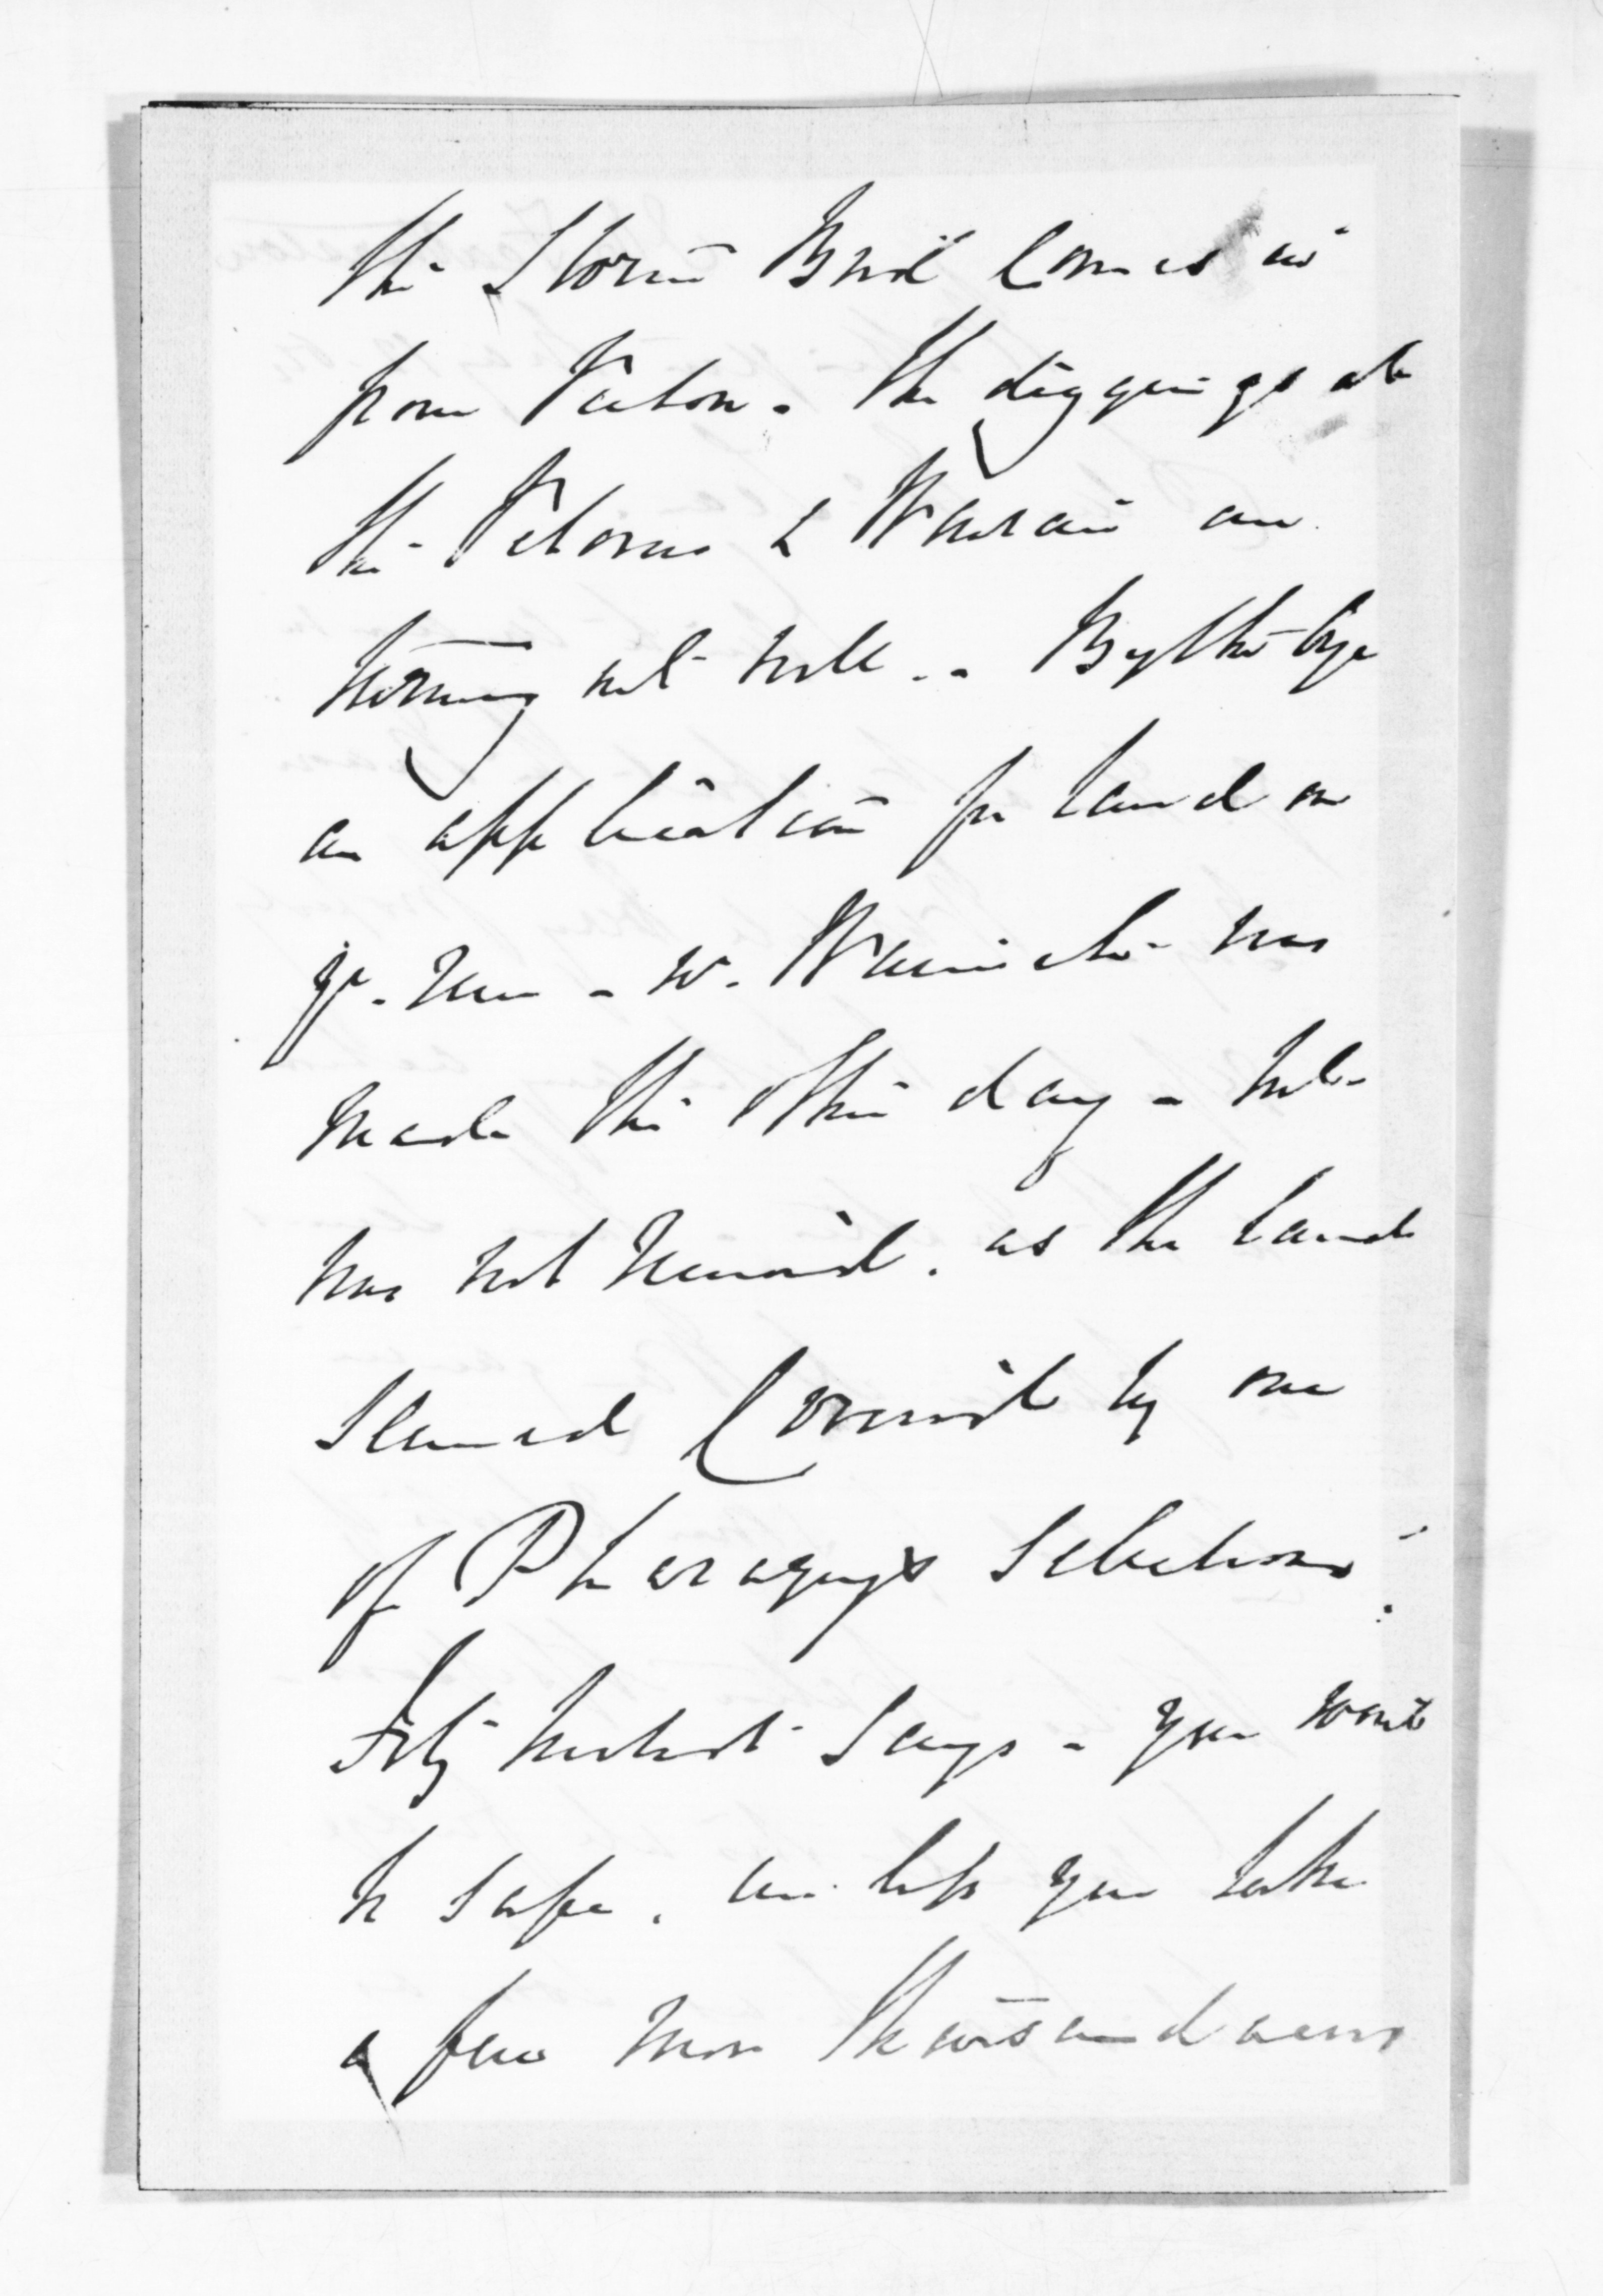 the Storm Bird comes in
from Picton. The diggings at
the Pelorus & Wairau are
turning out well. - By the bye
an application for land on
yr. run - w. Warwick was
made the other day - but
was not renewed. as the land
seemed covered by one
of Pharazyn's selections.
Fitzherbert says - you wont
be safe, unless you take
a few more thousand acres